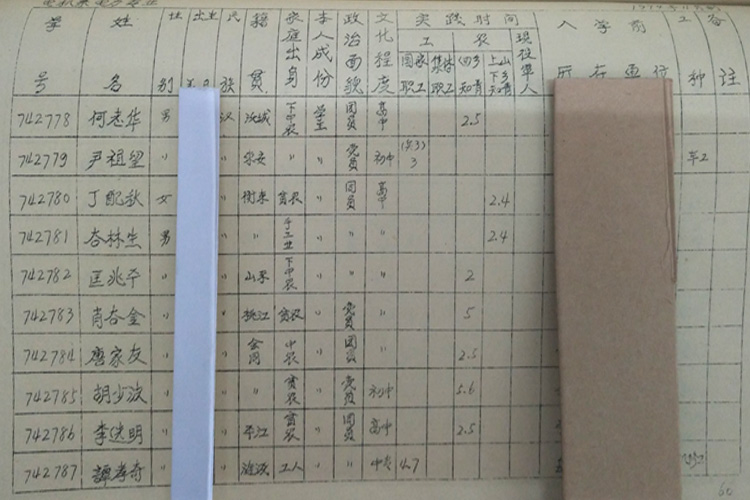 学号 姓名 性别 出生 民族 籍贯 家庭出身 本人成份 政治面貌 文化程度 实践时间 现役军人 入学前 工种 备注
工 农
国家职工 集体职工 回乡知青 上山下乡知青 所在单位
742778 何志华 男 汉 下中农 学生 团员 高中 2.5
742779 尹祖望 〃 〃 〃 〃 党员 初中 3
742780 丁配秋 女 〃 贫农 〃 团员 高中 2.4
742781 男 〃 〃 〃 〃 〃 2.4
742782 匡兆平 〃 〃 下中农 〃 〃 〃 2
742783 肖杏金 〃 〃 桃江 贫农 〃 党员 〃 5
742784 唐家友 〃 〃 会同 中农 〃 团员 〃 2.5
742785 胡少波 〃 〃 〃 贫农 〃 党员 初中 5.6
742786 李 明 〃 〃 平江 贫农 〃 团员 高中 2.5
742787 谭孝奇 〃 〃 涟源 工人 〃 〃 中专 4.7
60